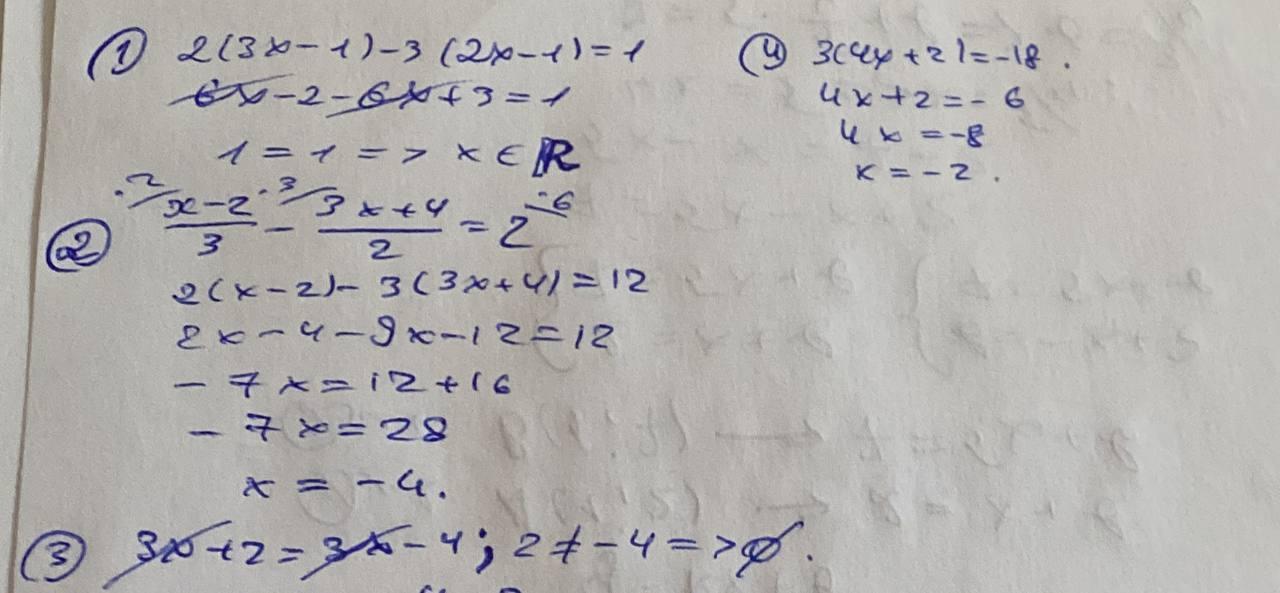 ① 2(3x-1)-3(2x-1)=1
6x-2-6x+3=1
1=1=> x∈ℝ
·2/ x-2 ·3/ 3x+4 ·6
② (x-2)/3 - (3x+4)/2 = 2
2(x-2)-3(3x+4)=12
2x-4-9x-12=12
-7x=12+16
-7x=28
x=-4.
③ 3x+2=3x-4; 2≠-4=>∅.
④ 3(4x+2)=-18.
4x+2=-6
4x=-8
x=-2.